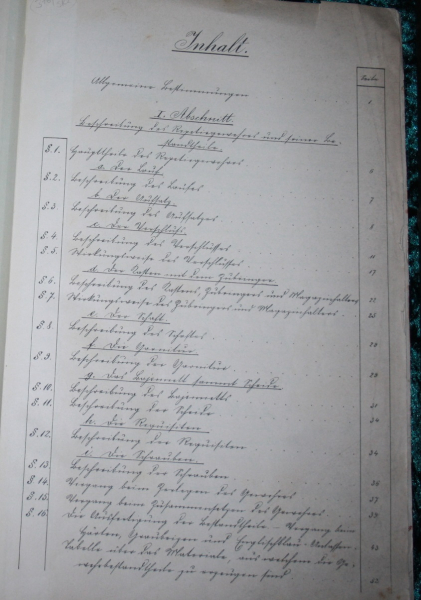 Inhalt.
Seite
Allgemeine Bestimmungen
I. Abschnitt.
Beschreibung des Repetiergewehres und seiner Be-
standtheile.
§. 1. Haupttheile des Repetiergewehres
a. Der Lauf
§. 2. Beschreibung des Laufes
b. Der Aufsatz
§. 3. Beschreibung des Aufsatzes
c. Der Verschluss
§. 4. Beschreibung des Verschlusses
§. 5. Wirkungsweise des Verschlusses
d. Der Kasten mit dem Zubringer
§. 6. Beschreibung des Kastens, Zubringers und Magazinhalters
§. 7. Wirkungsweise des Zubringers und Magazinhalters
e. Der Schaft
§. 8. Beschreibung des Schaftes
f. Die Garnitur
§. 9. Beschreibung der Garnitur
g. Das Bajonnett sammt Scheide
§. 10. Beschreibung des Bajonnetts
§. 11. Beschreibung der Scheide
h. Die Requisiten
§. 12. Beschreibung der Requisiten
i. Die Schrauben
§. 13. Beschreibung der Schrauben
§. 14. Vorgang beim Zerlegen des Gewehres
§. 15. Vorgang beim Zusammensetzen des Gewehres
§. 16. Die Ausfertigung der Bestandtheile - Vorgang beim
Härten, und
Tabelle über das Materiale, aus welchem die Ge-
wehrbestandtheile zu erzeugen sind